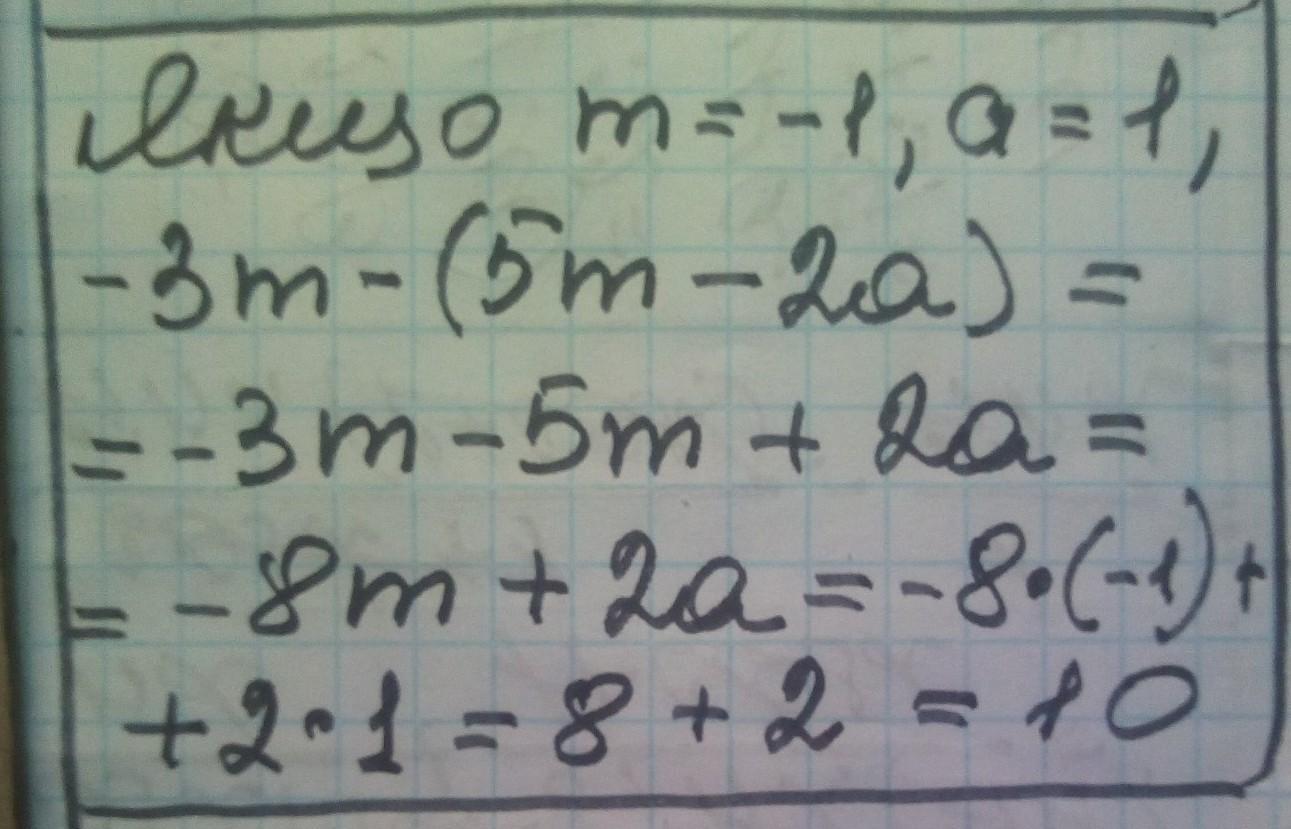 Якщо m = -1, a = 1,
-3m - (5m - 2a) =
= -3m - 5m + 2a =
= -8m + 2a = -8·(-1) +
+ 2·1 = 8 + 2 = 10